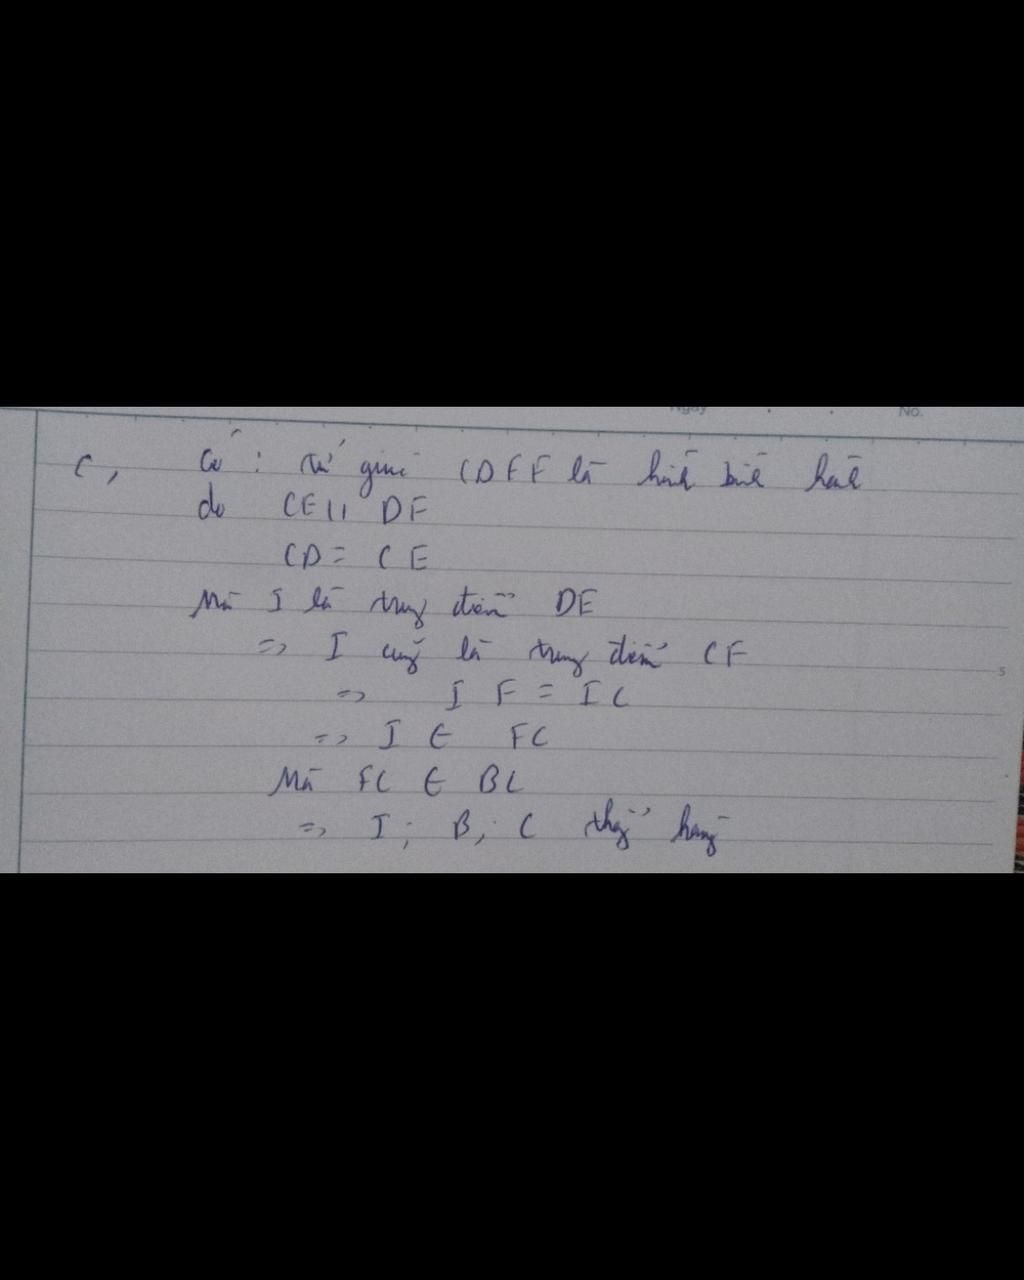 Ngày
No.
c, Có : Tứ giác CDFF là hình bình hành
do CE || DF
CD = CE
Mà I là trung điểm DE
=> I cũng là trung điểm CF
=> I F = I C
=> I ∈ FC
Mà FC ∈ BC
=> I ; B ; C thẳng hàng
5